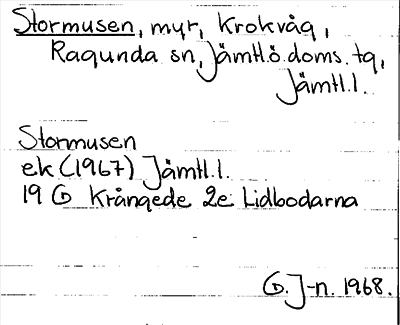 Stormusen, myr, Krokvåg,
Ragunda sn, Jämtl.ö. doms. tg,
Jämtl.l.
Stormusen
ek (1967) Jämtl.l.
19 G Krångede 2e Lidbodarna
G. J-n. 1968.